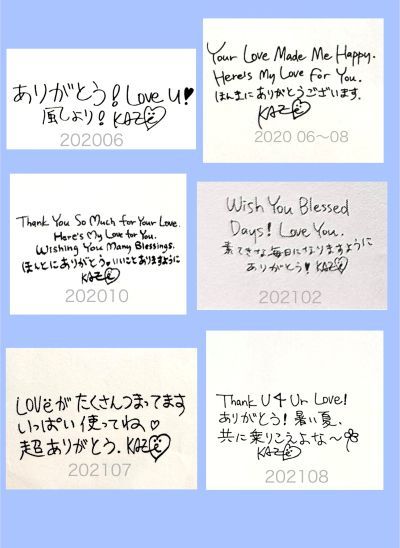 ありがとう！Love U!
風しより！KAZE
202006
Your Love Made Me Happy.
Here's My Love for You.
ほんまにありがとうございます。
KAZE
2020 06〜08
Thank You So Much for Your Love.
Here's My Love for You.
Wishing You Many Blessings.
ほんとにありがとう いいことありますように
KAZE
202010
Wish You Blessed
Days! Love You.
素てきな毎日になりますように
ありがとう! KAZE
202102
LOVEがたくさんつまってます
いっぱい使ってね
超ありがとう. KAZE
202107
Thank U 4 Ur Love!
ありがとう! 暑い夏、
共に乗りこえよな〜
KAZE
202108